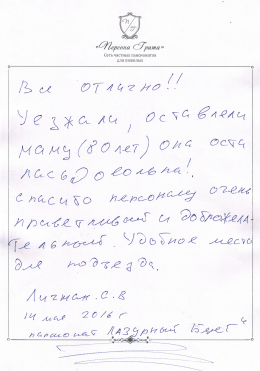 «Перекка Грата»
Сеть частных пансионатов
для пожилых
Все отлично!!
Уезжали, оставляли
маму (80 лет) она оста
лась довольна!.
спасибо персоналу очень
приветливый и доброжела-
тельный. Удобное место
для подъезда.
С.В
14 мая 2016 г
пансионат Лазурный Берег"